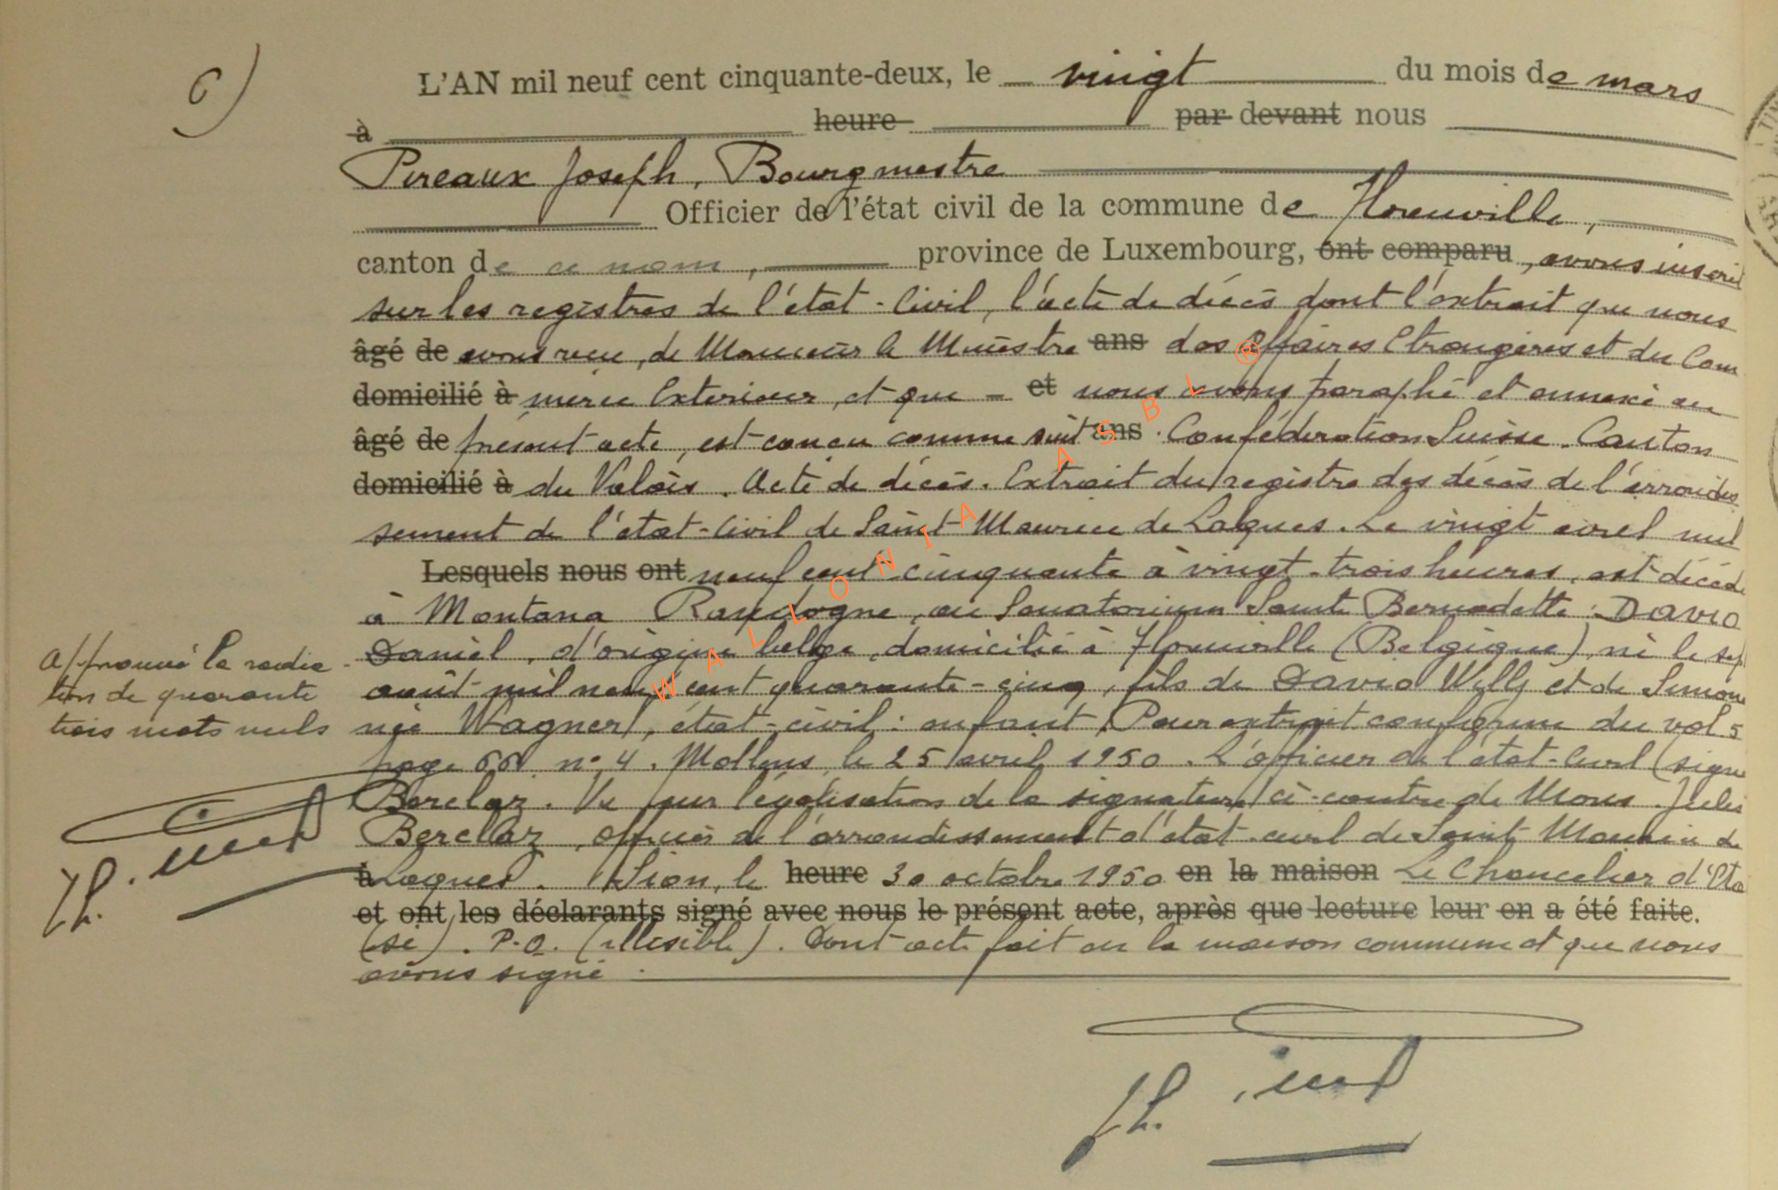 6)
L'AN mil neuf cent cinquante-deux, le vingt du mois de mars
à heure par devant nous
Pireaux Joseph, Bourgmestre
Officier de l'état civil de la commune de Florenville,
canton de ce nom, province de Luxembourg, ont comparu, avons inscrit
sur les registres de l'état-Civil, l'acte de décès dont l'extrait que nous
âgé de avons reçu, de Monsieur le Ministre ans des Affaires Etrangères et du Com
domicilié à merce Exterieur, et que – et nous avons paraphé et annexé au
âgé de présent acte, est conçu comme suit ans. Confédération Suisse. Canton
domicilié à du Valais. Acte de décès. Extrait du registre des décès de l'arrondis
sement de l'état-Civil de Saint-Maurice de Laques. Le vingt avril mil
Lesquels nous ont neuf cent cinquante à vingt-trois heures, est décédé
à Montana Randogne, au Sanatorium Sainte Bernadette : DAVID
Daniel, d'origine belge, domicilié à Florenville (Belgique), né le sept
août mil neuf cent quarante-cinq, fils de DAVID Willy et de Simone
née Wagner, état-civil : enfant. Pour extrait conforme du vol 5
page 66 n° 4. Mollens, le 25 avril 1950. L'officier de l'état-Civil (signé
Berclaz. Vu pour légalisation de la signature ci-contre de Mons. Jules
Berclaz, officier de l'arrondissement d'état-civil de Saint-Maurice de
à Laques. Sion, le heure 30 octobre 1950 en la maison Le Chancelier d'Eta
et ont les déclarants signé avec nous le présent acte, après que lecture leur en a été faite.
(sé). P.O. (illisible). Dont acte fait en la maison commune et que nous
avons signé.
Approuvé la radia-
tion de quarante
trois mots nuls
WALLONIA ASBL ®